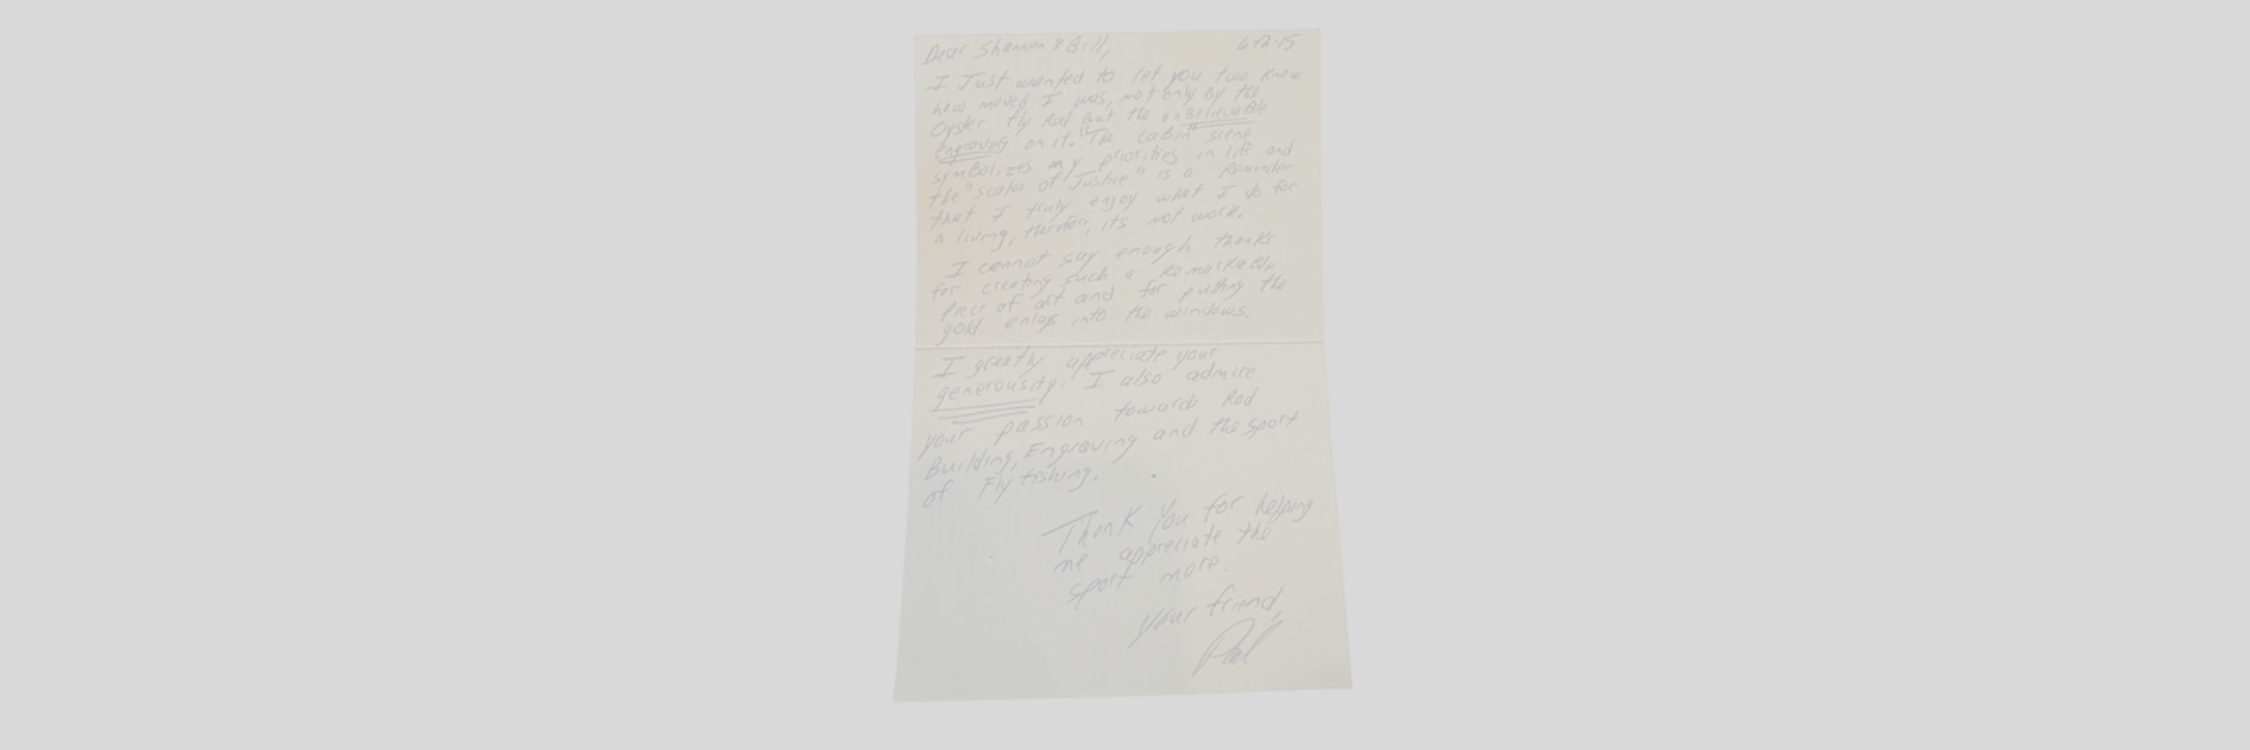 Dear Shannon & Bill, 6-12-15
I Just wanted to let you two know
how moved I was, not only by the
Oyster fly Rod But the unBelievaBle
engraving on it. "The caBin" scene
symBolizes my priorities in life and
the "scales of Justice" is a Reminder
that I truly enjoy what I do for
a living, therefore, its not work.
I cannot say enough thanks
for creating such a RemarkaBle
piece of art and for putting the
gold inlays into the windows.
I greatly appreciate your
generousity. I also admire
your passion towards Rod
Building, Engraving and the sport
of Fly fishing.
Thank you for helping
me appreciate the
sport more.
your friend,